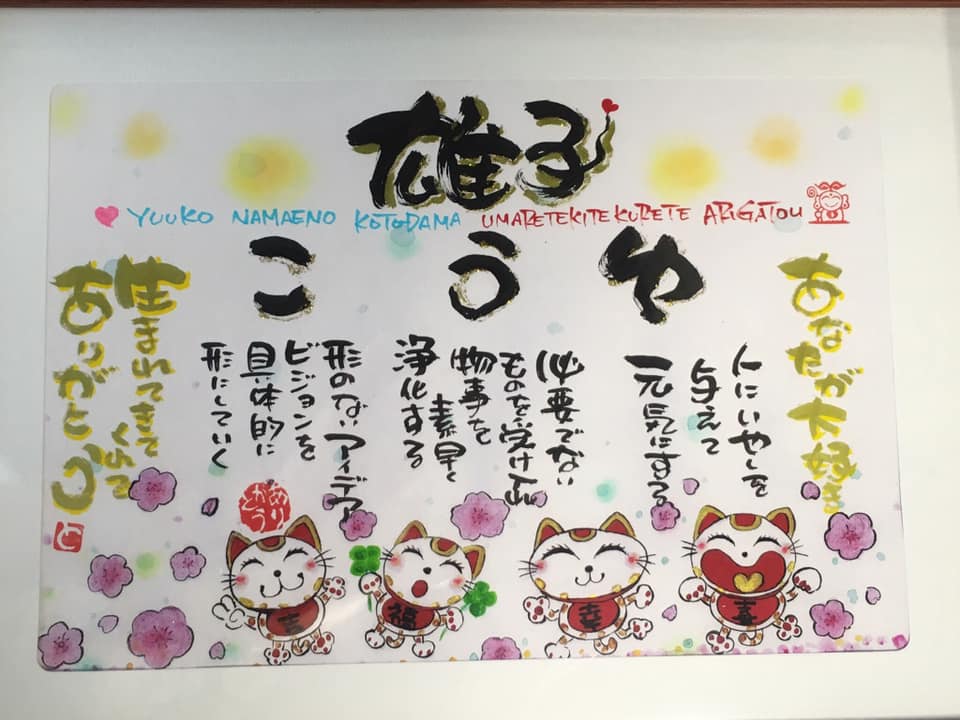 雄子
YUUKO NAMAENO KOTODAMA UMARETEKITEKURETE ARIGATOU
あなたが大好き
ゆ
人にいやしを
与えて
元気にする
う
必要でない
ものを受け止
物事を
素早く
浄化する
こ
形のないアイデア
ビジョンを
具体的に
形にしていく
生まれてきて
くれて
ありがとう
と
ありがとう
吉
福
幸
喜